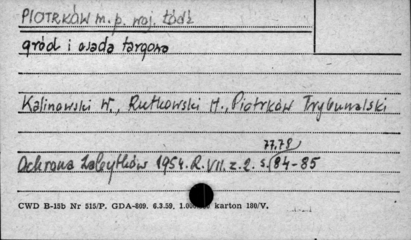 PIOTRKÓW m.p. woj. Łódź
gród i osada targowa
Kalinowski W., Rutkowski H., Piotrków Trybunalski
77.78
Ochrona Zabytków 1954. R. VII. z. 2. s. 84-85
CWD B-15b Nr 515/P. GDA-809. 6.3.59. 1.000 karton 180/V.